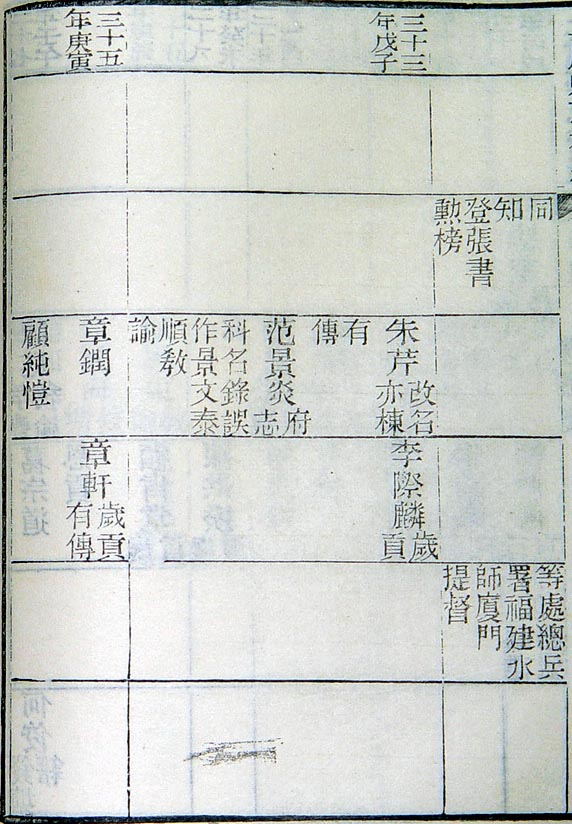 三十三
年戊子
三十五
年庚寅
同
知
登張書
勲榜
朱芹
改名
亦棟
有
傳
范景炎
府
志
科名錄誤
作景文泰
順教
諭
章鐗
顧純愷
李際麟
歲
貢
章軒
歲貢
有傳
等處總兵
署福建水
師廈門
提督